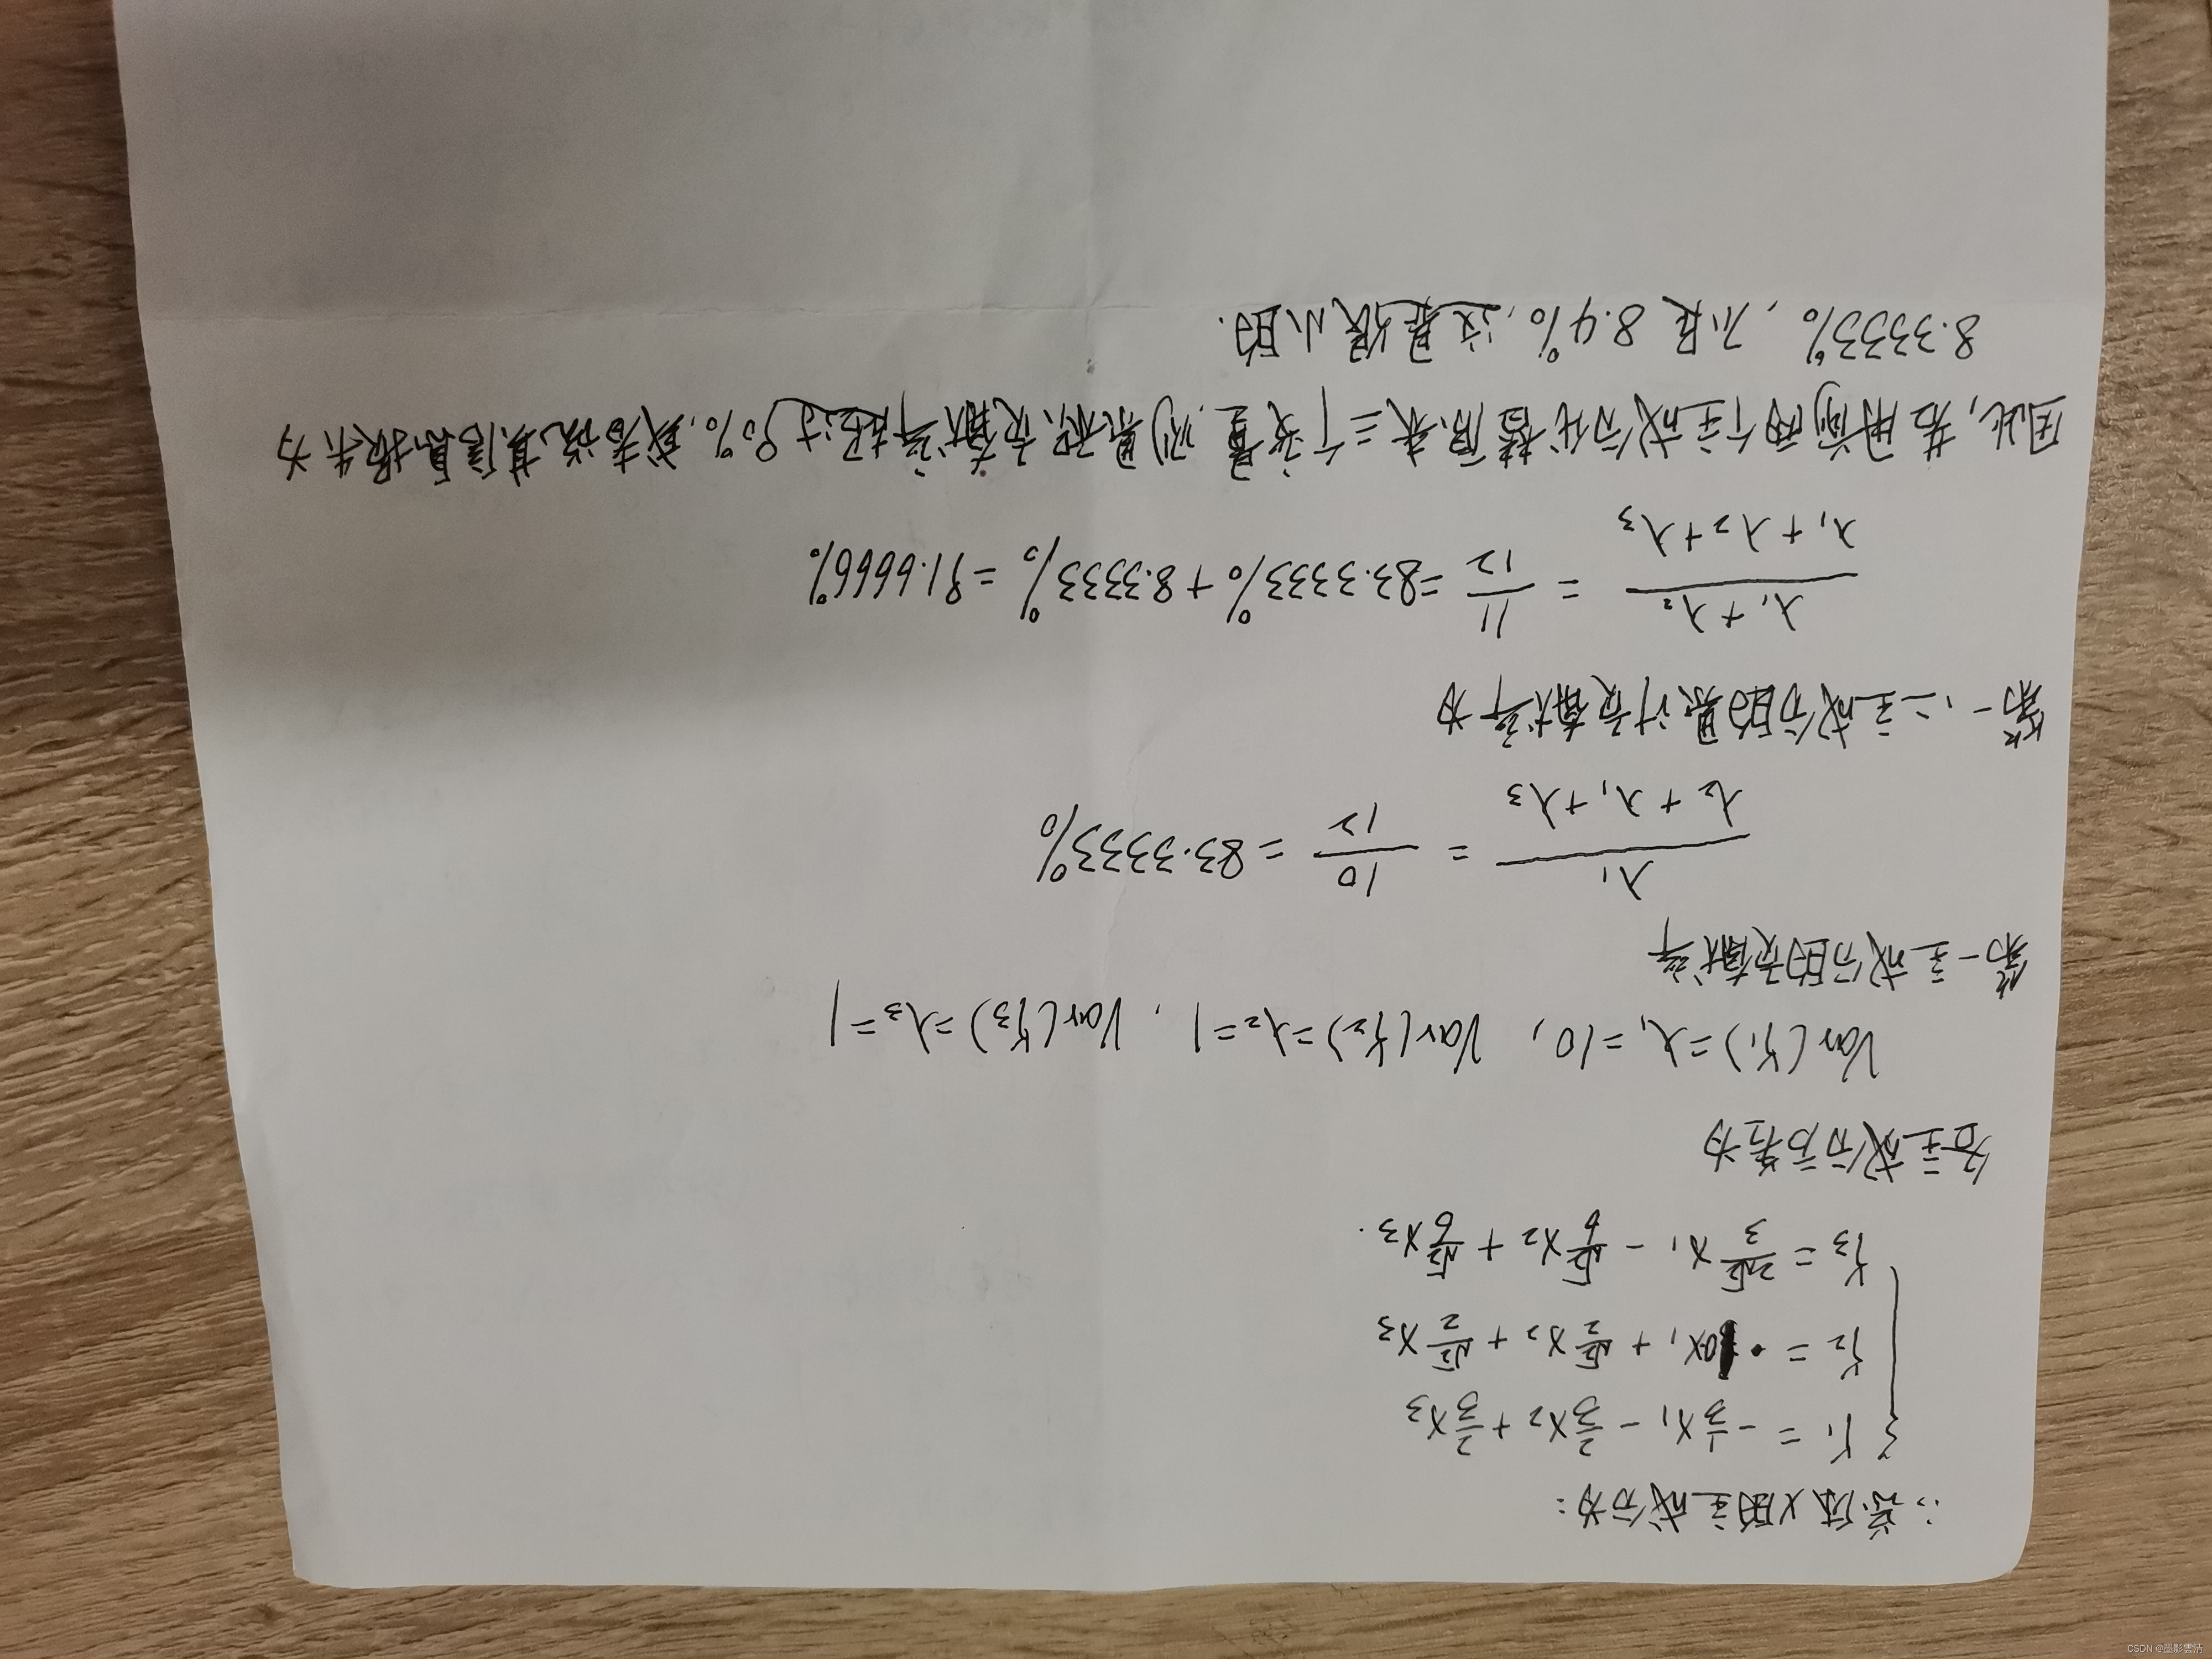 ∴总体X的主成分为:
Y₁ = -1/3 X₁ - 2/3 X₂ + 2/3 X₃
Y₂ = 0X₁ + √2/2 X₂ + √2/2 X₃
Y₃ = 2√2/3 X₁ - √2/6 X₂ + √2/6 X₃.
各主成分方差为
Var(Y₁)=λ₁=10, Var(Y₂)=λ₂=1, Var(Y₃)=λ₃=1
第一主成分的贡献率
λ₁/(λ₂+λ₁+λ₃) = 10/12 = 83.3333%
第一、二主成分的累计贡献率为
(λ₁+λ₂)/(λ₁+λ₂+λ₃) = 11/12 = 83.3333% + 8.3333% = 91.6666%
因此,若用前两个主成分代替原来三个变量,则累积贡献率超过90%,或者说其信息损失为
8.3333%, 不足8.4%,这是很小的.
CSDN @墨影雲清